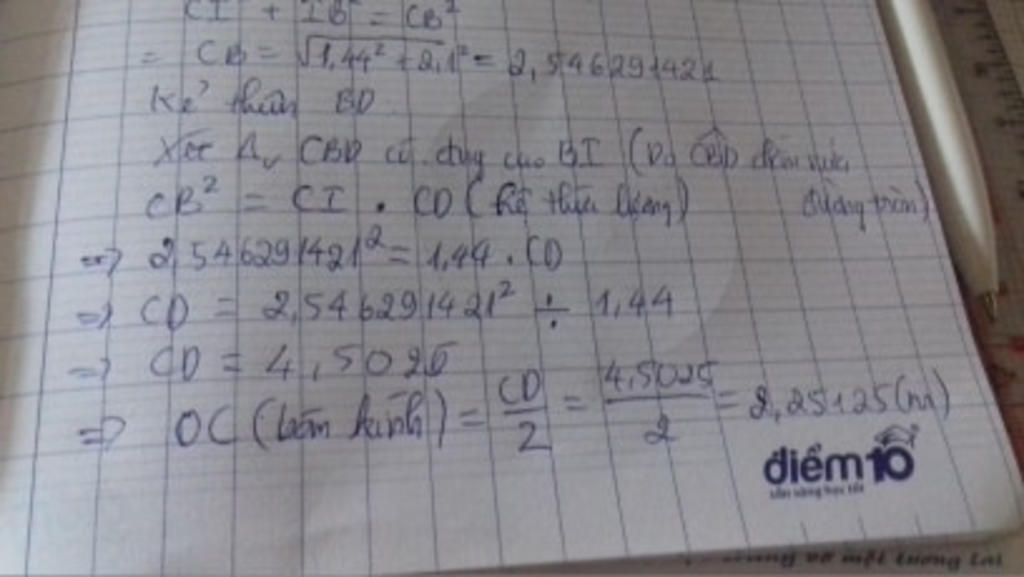 CI² + IB² = CB²
= CB = √1,44² + 2,1² = 2,546291421
Kẻ thêm BD.
Xét Δv CBD có đường cao BI (Do CBD chắn nửa
đường tròn)
CB² = CI . CD (hệ thức lượng)
=> 2,546291421² = 1,44 . CD
=> CD = 2,546291421² ÷ 1,44
=> CD = 4,5025
=> OC (bán kính) = CD/2 = 4,5025/2 = 2,25125 (m)
điểm10